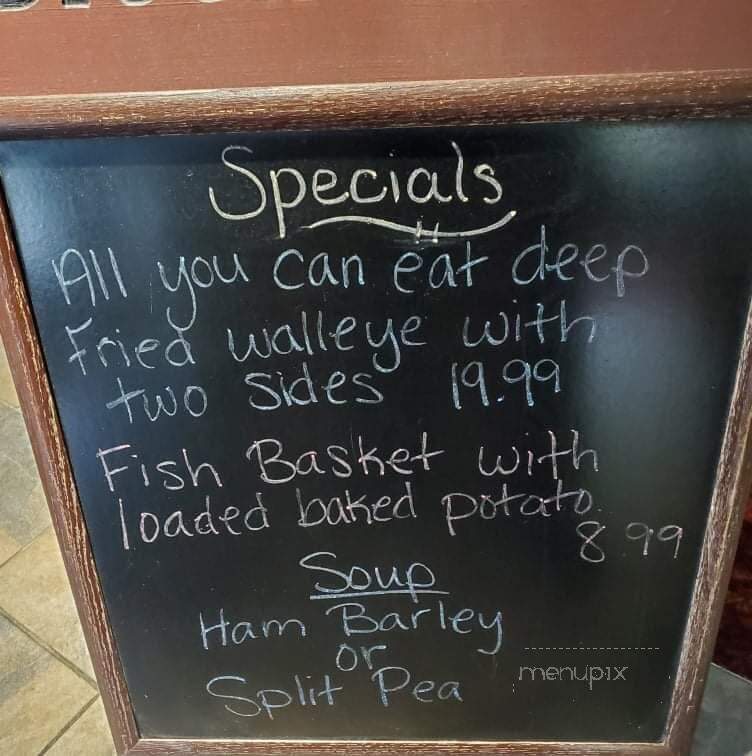 Specials
All you can eat deep
Fried walleye with
two sides 19.99
Fish Basket with
loaded baked potato
8.99
Soup
Ham Barley
or
Split Pea
menupix